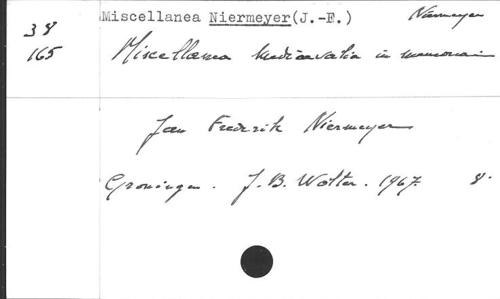 Miscellanea Niermeyer(J.-F.)
Niermeyer
38
165
Miscellanea Mediaevalia in memoriam
Jan Frederik Niermeyer
Groningen. J.B. Wolter. 1967. 8°